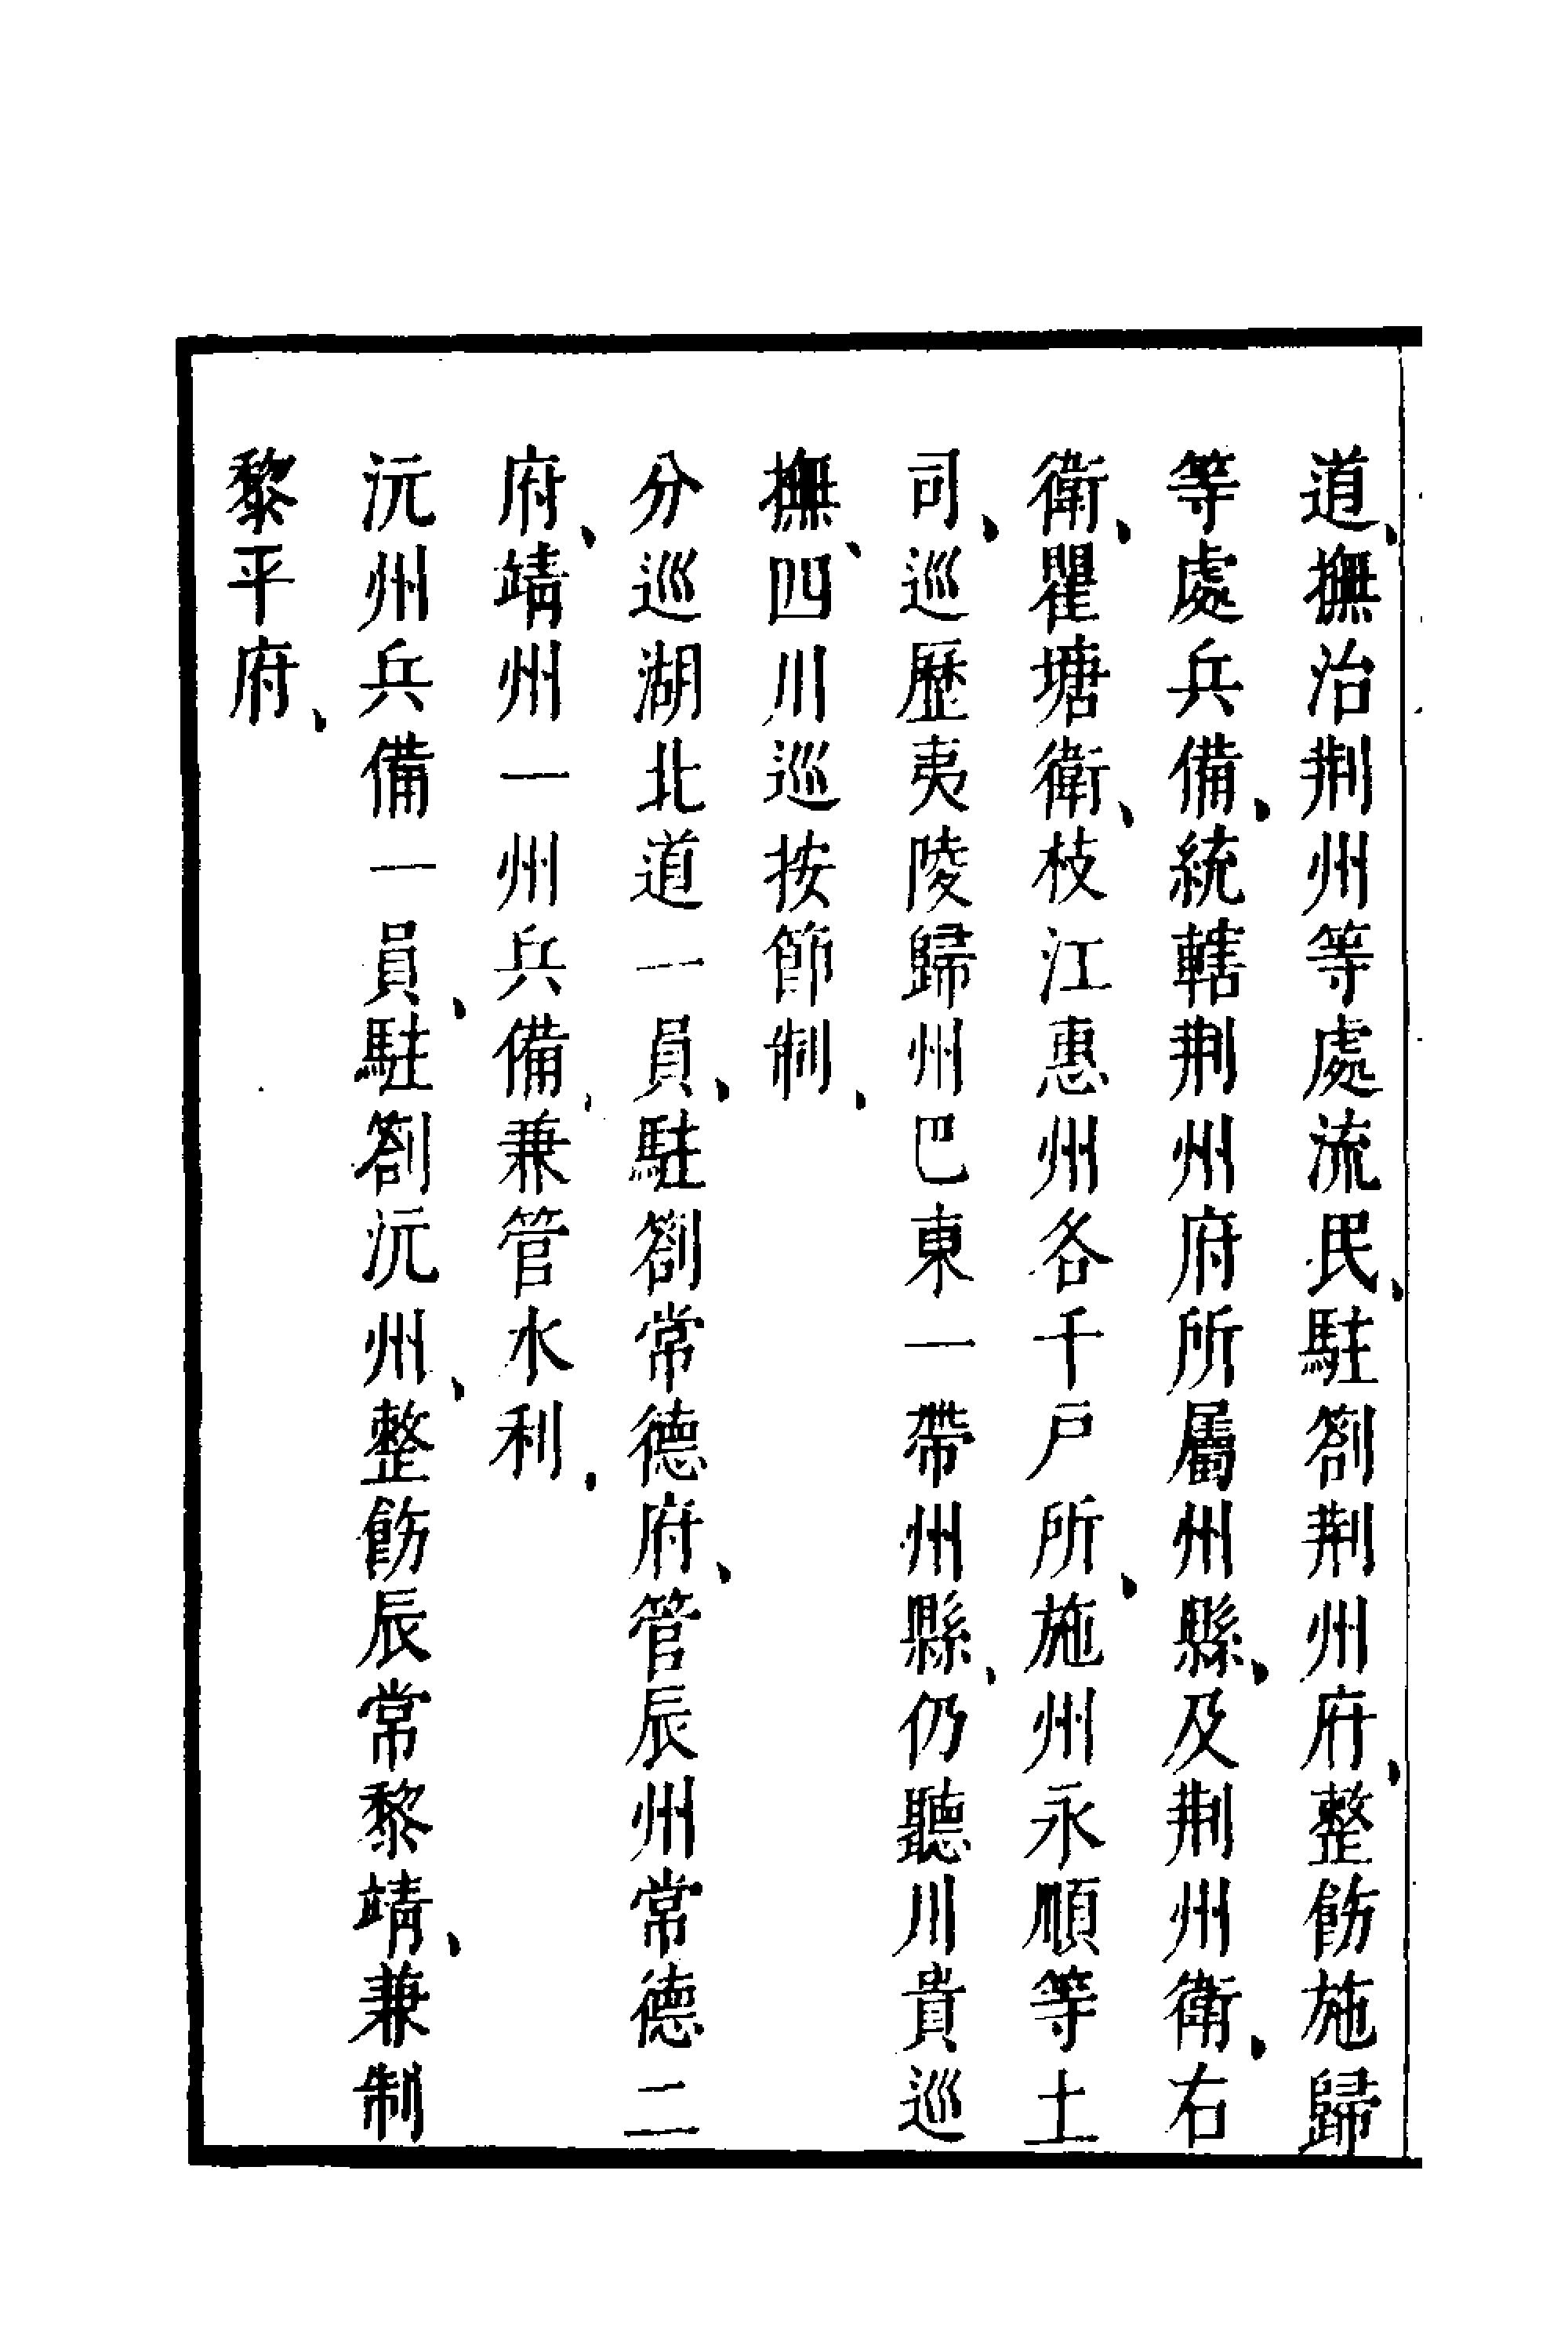 道、撫治荆州等處流民、駐劄荆州府、整飭施歸
等處兵備、統轄荆州府所屬州縣、及荆州衛、右
衛、瞿塘衛、枝江惠州各千戸所、施州永順等土
司、巡歷夷陵歸州巴東一帶州縣、仍聽川貴巡
撫、四川巡按節制、
分巡湖北道一員、駐劄常德府、管辰州常德二
府、靖州一州兵備、兼管水利、
沅州兵備一員、駐劄沅州、整飭辰常黎靖、兼制
黎平府、